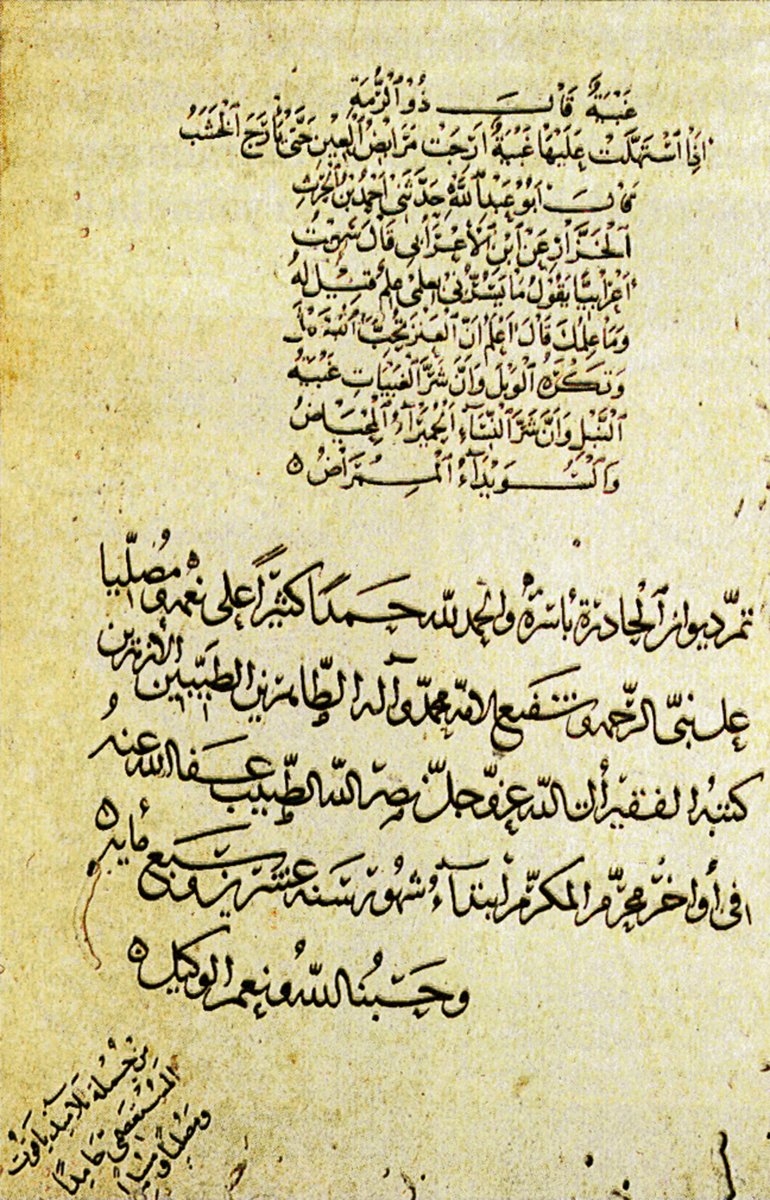 غَبْيَةٌ قَالَ ذُو ٱلرُّمَّةِ
إِذَا ٱسْتَهَلَّتْ عَلَيْهَا غَبْيَةٌ أَرِجَتْ مَرَابِضُ ٱلْعِينِ حَتَّى يَأْرَجَ ٱلْخَشَبُ
قال أَبُو عَبْدِ ٱللَّهِ حَدَّثَنِي أَحْمَدُ بْنُ ٱلْحٰرِثِ
ٱلْخَزَّازُ عَنِ ٱبْنِ ٱلْأَعْرَابِي قَالَ سَمِعْتُ
أَعْرَابِيًّا يَقُولُ مَا يَسُرُّنِي بِعِلْمِي عِلْمٌ قِيلَ لَهُ
وَمَا عِلْمُكَ قَالَ أَعْلَمُ أَنَّ ٱلْعَنْزَ تُحِبُّ
وَتَكْرَهُ ٱلْوَبْلَ وَأَنَّ شَرَّ ٱلْغَبَيَاتِ غَبْيَةُ
ٱلنَّبْلِ وَأَنَّ شَرَّ ٱلنِّسَاءِ ٱلْحُمَيْرَاءُ ٱلْمِحْيَاضُ
وَٱلسُّوَيْدَاءُ ٱلْمِمْرَاضُ ه
تمّ ديوان ٱلحادرة بأسره والحمد لله حمدًا كثيرًا على نعمه ومصلّيا
على نبيّ الرّحمة وشفيع الأمّة محمد وآله الطّاهرين الطيّبين الأنزعين
كتبه الفقير إلى الله عزّ وجلّ نصر الله الطّبيب عفا الله عنه
في أواخر محرّم المكرّم لابتداء شهور سنة عشرين وسبع مايه ه
وحسبنا الله ونعم الوكيل ه
من جملة تلاميذ ياقوت
المستعصمي حامدًا
ومصليًا